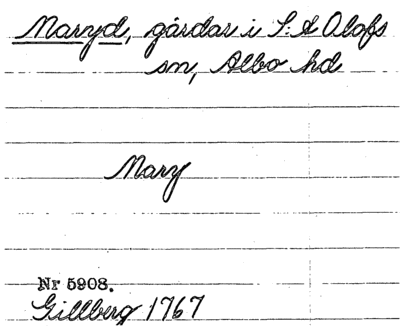 Maryd, gårdar i S:t Olofs
sn, Albo hd
Mary
Nr 5908.
Gillberg 1767